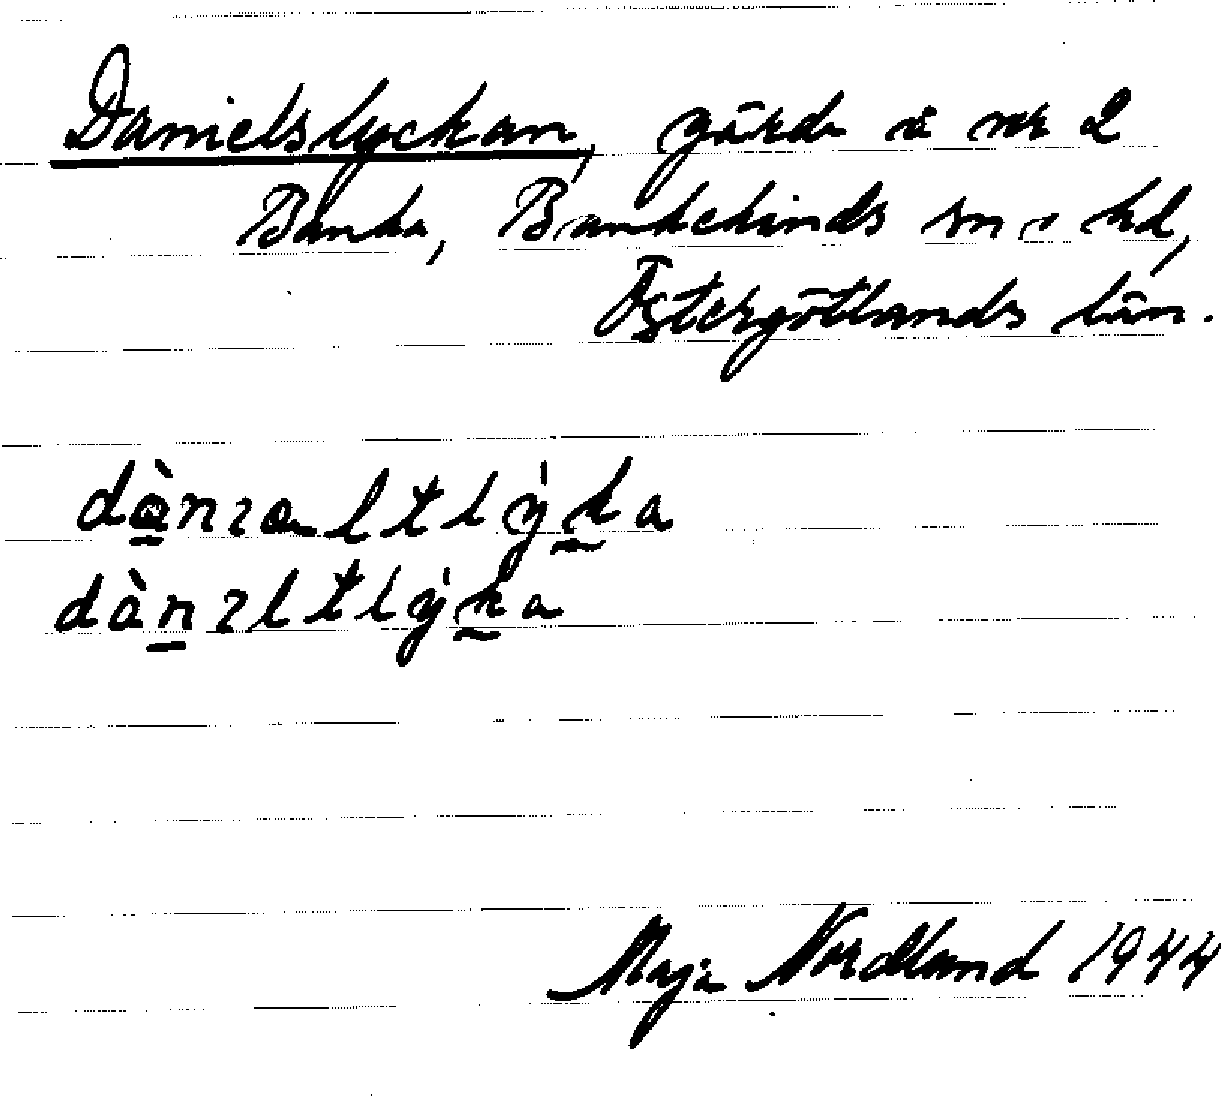 Danielslyckan, gärde å nr 2
Banka, Bankekinds sn o hd,
Östergötlands län.
dànzaltlẏka
dànzltlẏka
Maja Nordland 1944